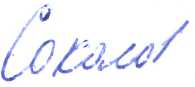 Соколов